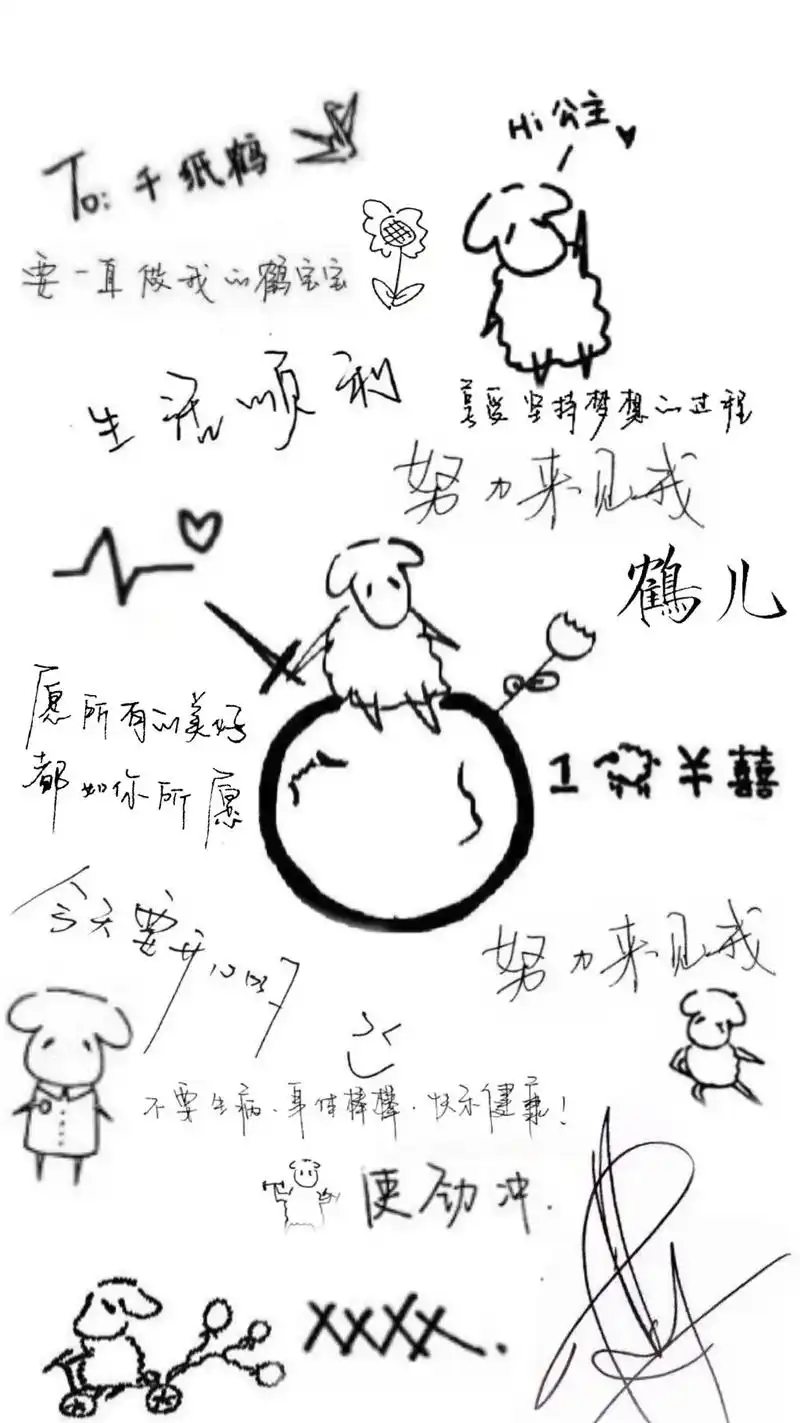 Hi 公主
To: 千纸鹤
要一直做我的鹤宝宝
生活顺利
享受坚持梦想的过程
努力来见我
鹤儿
愿所有的美好
都如你所愿
1 ¥ 囍
今天要开心呀
努力来见我
不要生病、身体棒棒、快乐健康!
使劲冲.
XXXX.